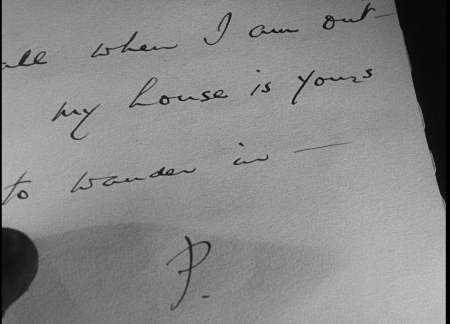 when I am out—
my house is yours
to wander in —
P.